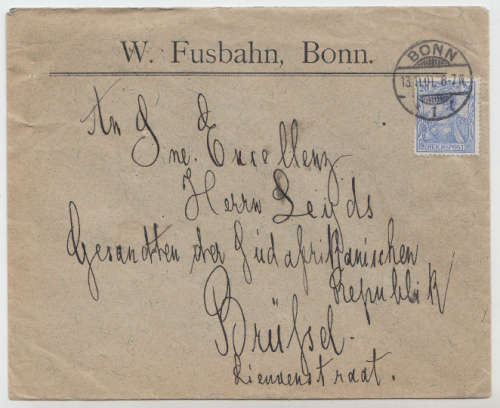 W. Fusbahn, Bonn.
BONN
13.11.01. 8-7N.
1 f
REICHSPOST
An Sne. Excellenz
Herrn Leyds
Gesandten der Südafrikanischen
Republik
Brüßel.
Liendenstraat.